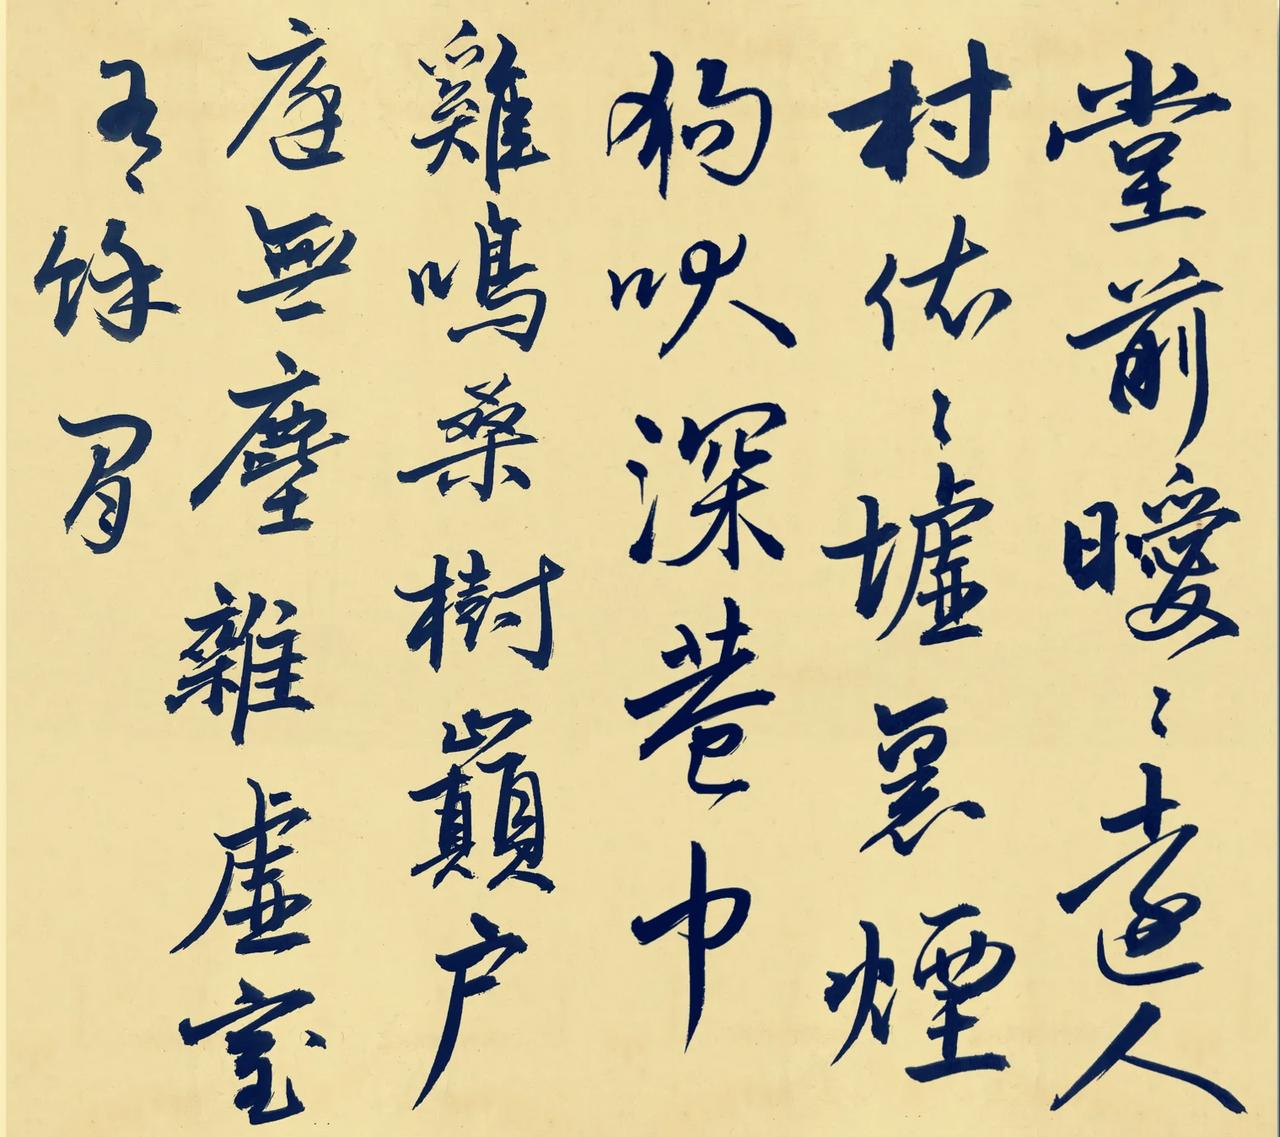 堂前曖〻遠人
村依〻墟裏煙
狗吠深巷中
雞鳴桑樹巔户
庭無塵雜虛室
有餘閒